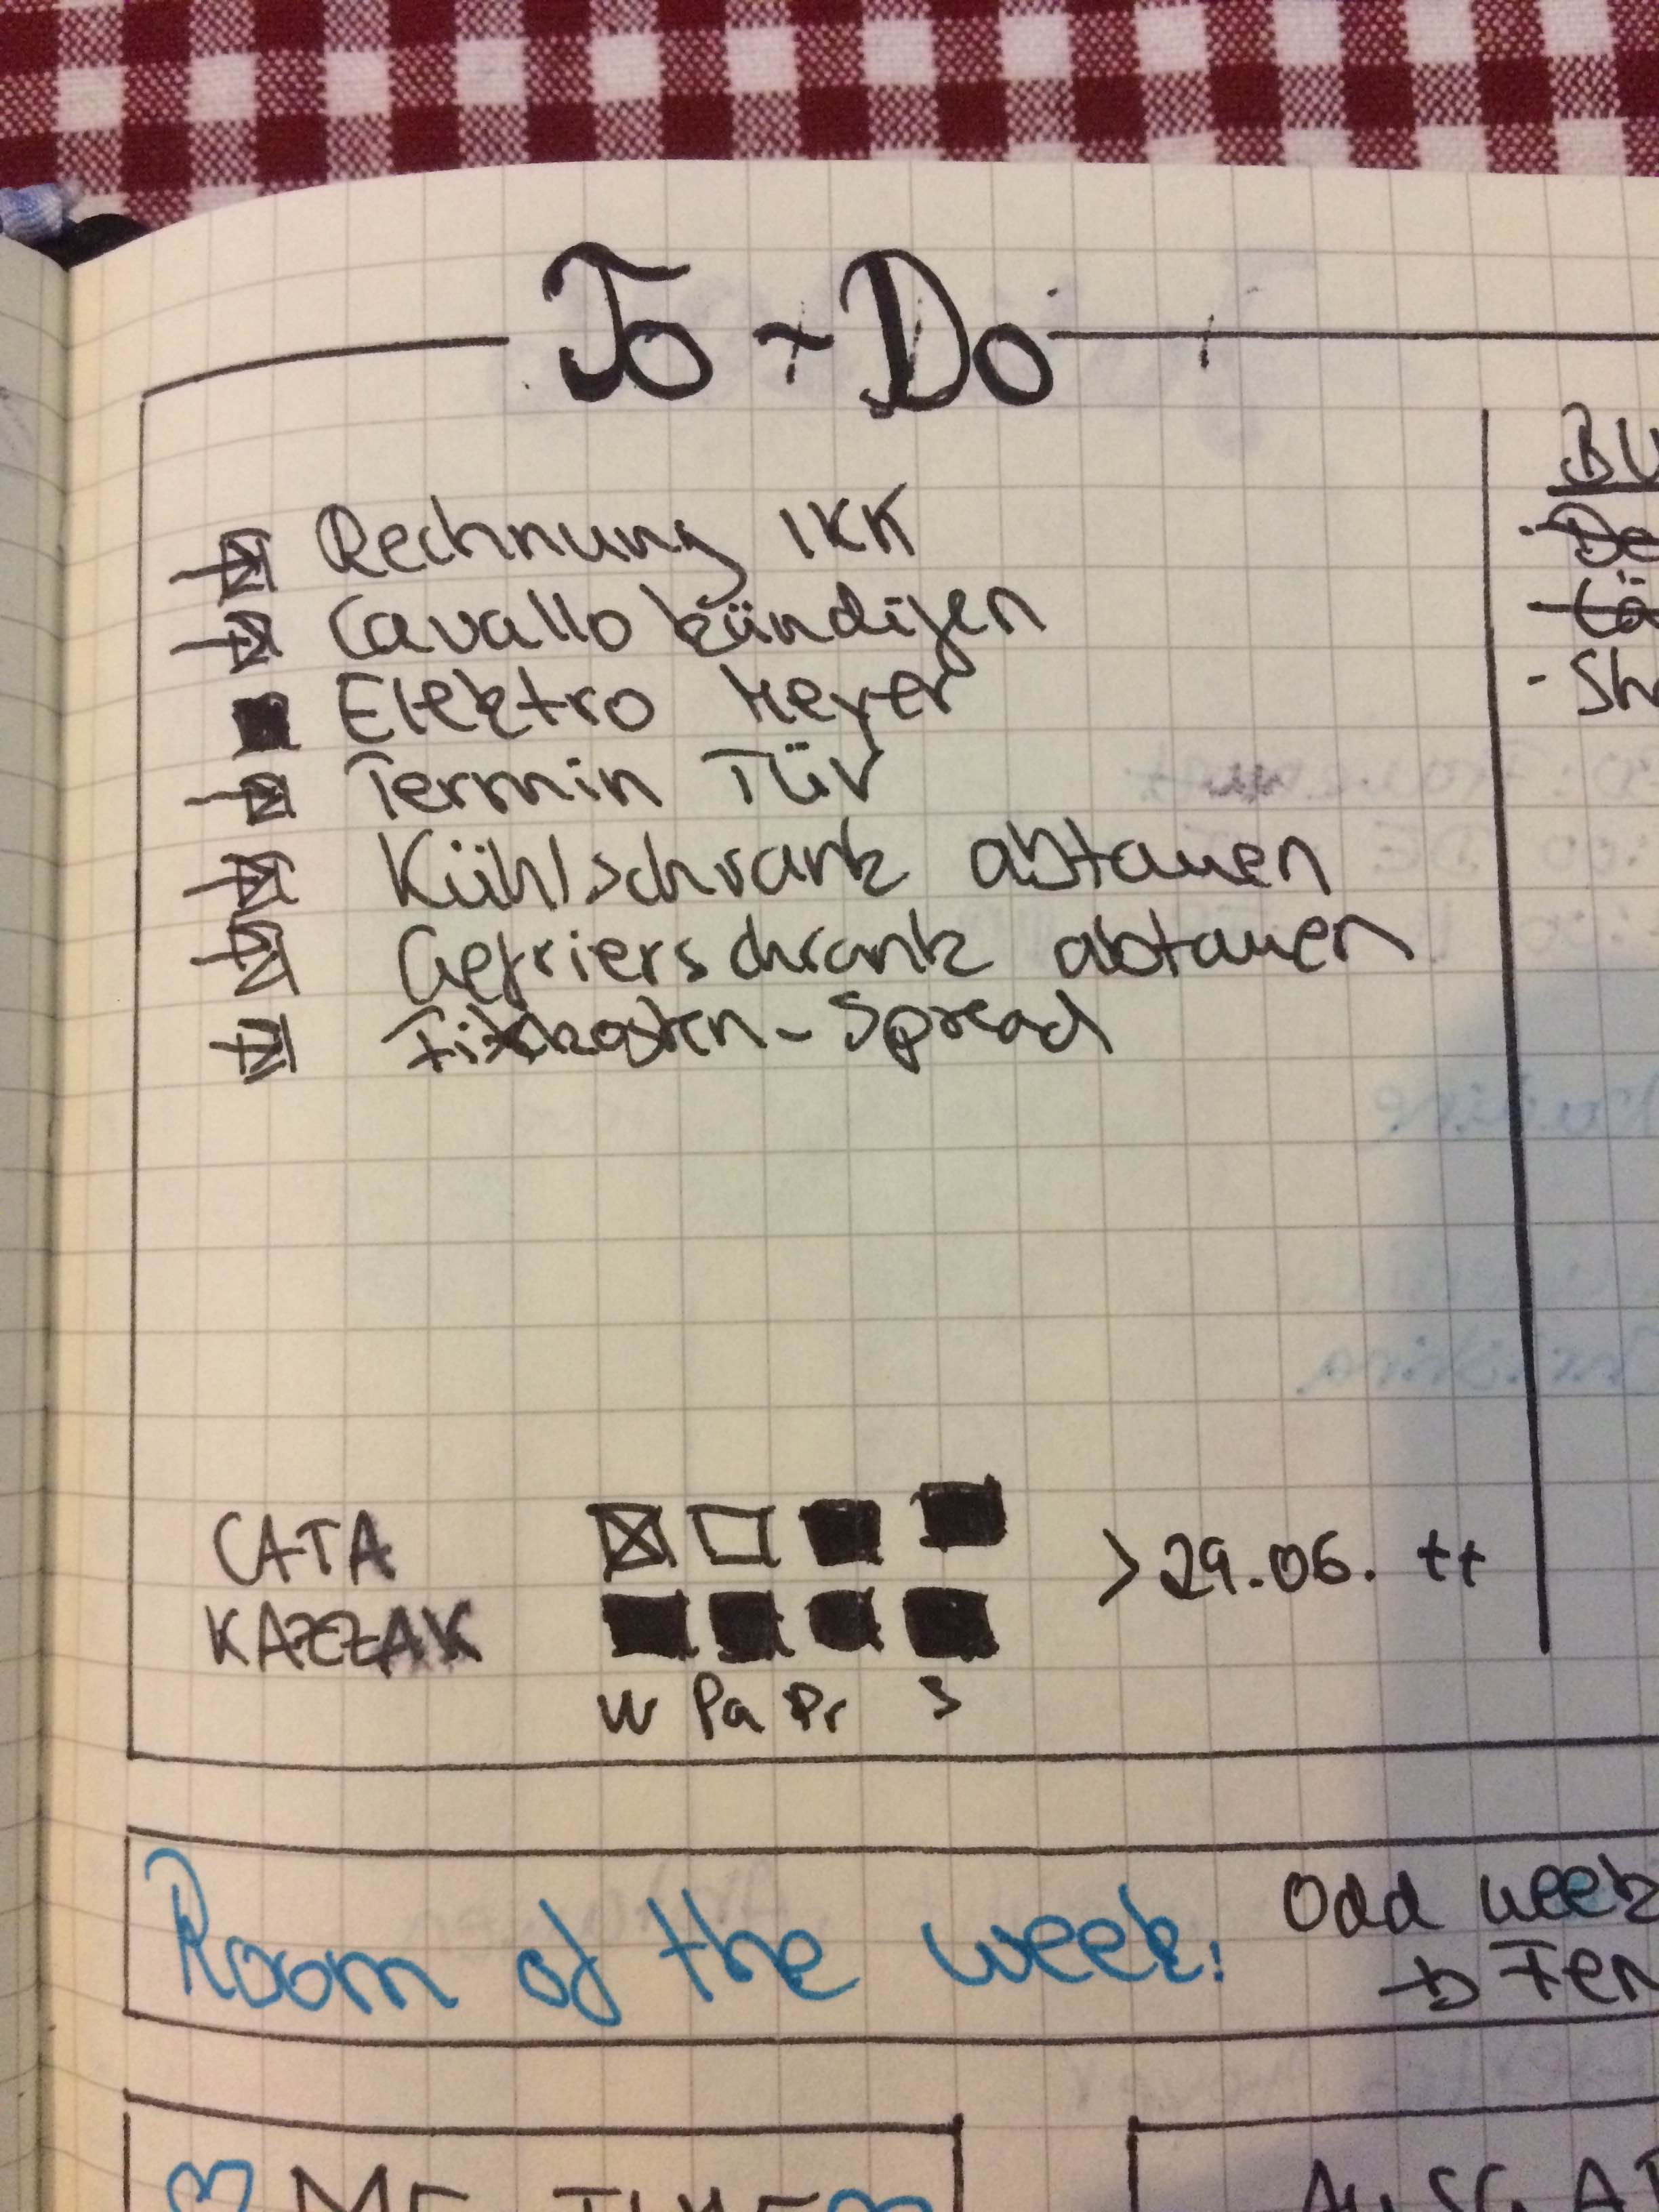 To-Do
Rechnung IKK
Cavallo kündigen
Elektro Meyer
Termin TÜV
Kühlschrank abtauen
Gefrierschrank abtauen
Fixkosten-Spread
BU
De
- Sh
CATA
KAZZAK
> 29.06. ++
W Pa Pr S
Room of the week:
Odd week
→ Fen
♡ ME TIME ♡
AUSGAB